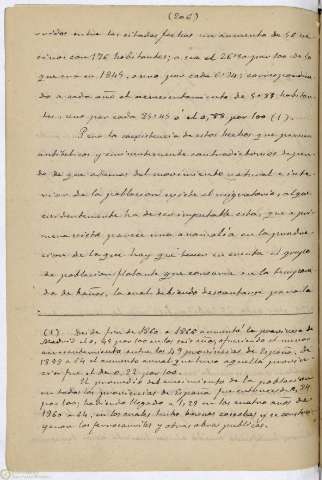 (206)
rridos entre las citadas fechas un aumento de 50 ve-
cinos con 176 habitantes; o sea el 26'30 por 100 de lo
que era en 1845, o uno por cada 6'34; correspondien-
do a cada año el acrecentamiento de 5'88 habitan-
tes uno por cada 25'45 o el 0,88 por 100 (1).
Pero la coexistencia de estos hechos que parecen
antitéticos y evidentemente contradictorios depen-
de de que además del movimiento natural e inte-
rior de la población existe el migratorio, a lo que
evidentemente ha de ser imputable esta, que a pri-
mera vista parece una anomalía en la produc-
cion de la que hay que tener en cuenta el grupo
de poblacion flotante que concurre en la tempora-
da de baños, la cual debiendo descontarse para la
(1) Des de fin de 1860 a 1868 aumentó la provincia de
Madrid el 0,48 por 100 en los seis años, ofreciendo el menor
acrecentamiento entre las 49 provincias de España; de
a el aumento anual que tuvo aquella provin-
cia fue el de 0,22 por 100.
El promedio del crecimiento de la poblacion
en todas las provincias de España fue entonces de 0,34
por 100; habiendo llegado a 1,28 en los cuatro años de
1860 a 64, en los cuales hubo buenas cosechas y se constru-
yeron los ferrocarriles y otras obras publicas.